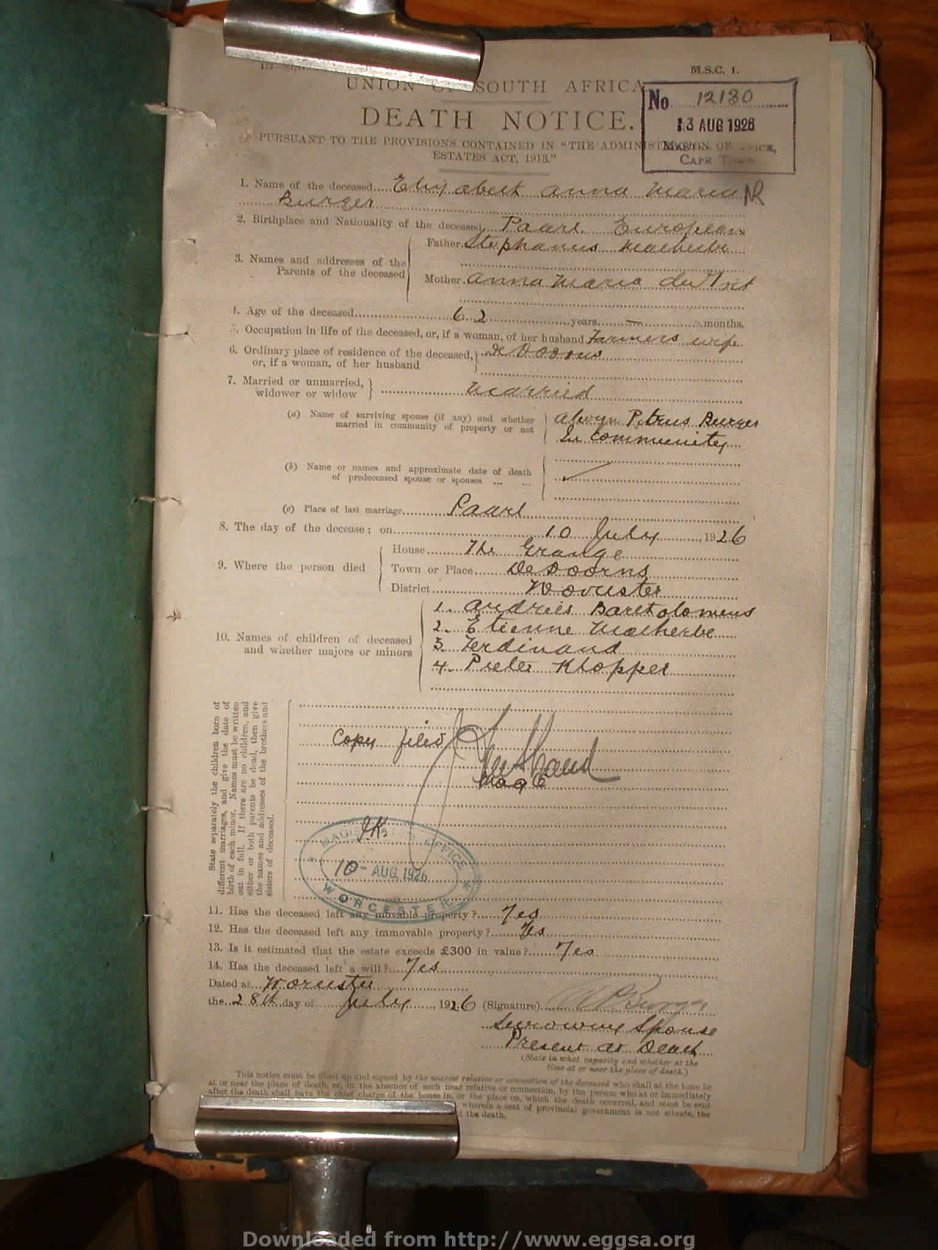 M.S.C. 1.
UNION OF SOUTH AFRICA
No. 12130
DEATH NOTICE.
13 AUG 1926
PURSUANT TO THE PROVISIONS CONTAINED IN "THE ADMINISTRATION OF
CAPE TOWN
ESTATES ACT, 1913."
1. Name of the deceased Elizabeth Anna Maria
Burger
2. Birthplace and Nationality of the deceased Paarl European
Father Stephanus Malherbe
3. Names and addresses of the
Parents of the deceased
Mother Anna Maria du Toit
4. Age of the deceased 62 years, — months.
5. Occupation in life of the deceased, or, if a woman, of her husband Farmers wife
6. Ordinary place of residence of the deceased, De Doorns
or, if a woman, of her husband
7. Married or unmarried, Married
widower or widow
(a) Name of surviving spouse (if any) and whether Alwyn Petrus Burger
married in community of property or not In Community
(b) Name or names and approximate date of death
of predeceased spouse or spouses ... ...
(c) Place of last marriage Paarl
8. The day of the decease; on 10 July 1926
House The Grange
9. Where the person died Town or Place De Doorns
District Worcester
1. Andries Bartholomeus
2. Etienne Malherbe
10. Names of children of deceased
and whether majors or minors
3. Ferdinand
4. Pieter Klopper
State separately the children born of
different marriages, and give the date of
birth of each minor. Names must be written
out in full. If there are no children, and
either or both parents be dead, then give
the names and addresses of the brothers and
sisters of deceased.
Copy filed
MAGISTRATE'S OFFICE
10 - AUG 1926
WORCESTER
11. Has the deceased left any movable property? Yes
12. Has the deceased left any immovable property? Yes
13. Is it estimated that the estate exceeds £300 in value? Yes
14. Has the deceased left a will? Yes
Dated at Worcester
the 28th day of July 1926 (Signature) AP Burger
Surviving Spouse
Present at Death
(State in what capacity and whether at the
time at or near the place of death.)
This notice must be filled up and signed by the nearest relative or connection of the deceased who shall at the time be
at or near the place of death, or, in the absence of such near relative or connection, by the person who at or immediately
after the death shall have the chief charge of the house in, or the place on, which the death occurred, and must be sent
wherein a seat of provincial government is not situate, the
the death.
Downloaded from http://www.eggsa.org